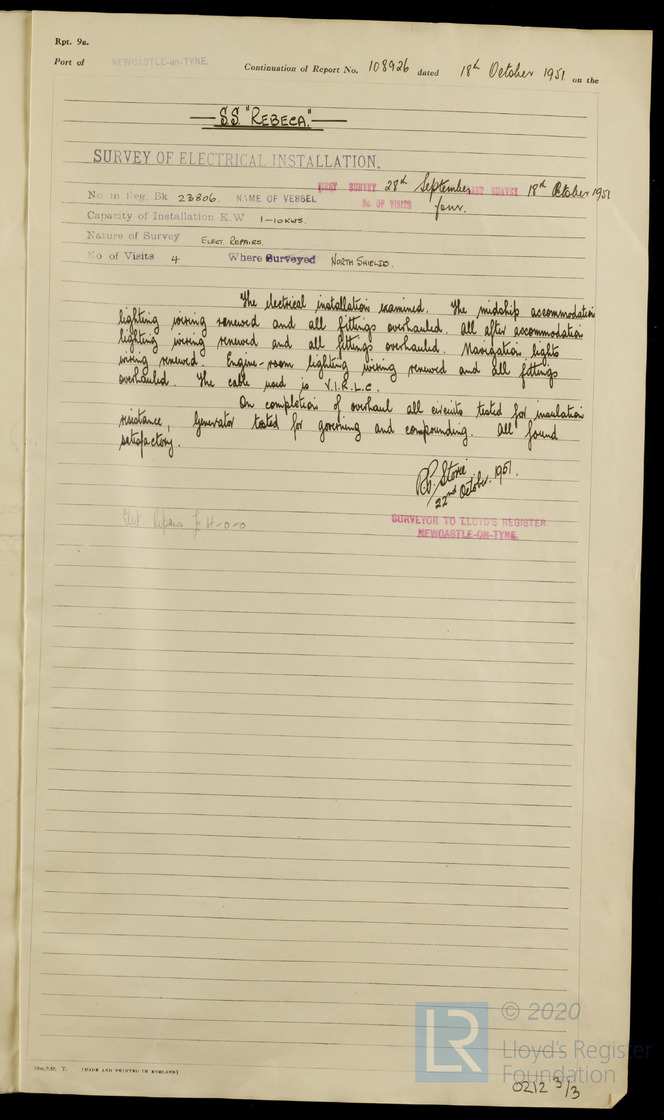 Rpt. 9a.
Port of NEWCASTLE-on-TYNE. Continuation of Report No. 108926 dated 18th October 1951 on the
S.S. "REBECA."
SURVEY OF ELECTRICAL INSTALLATION.
FIRST SURVEY 28th September LAST SURVEY 18th October 1951
No in Reg. Bk 23806. NAME OF VESSEL No. OF VISITS four.
Capacity of Installation K.W 1-10KWS.
Nature of Survey ELECT. REPAIRS.
No of Visits 4 Where Surveyed NORTH SHIELDS.
The electrical installation examined. The midship accommodation
lighting wiring renewed and all fittings overhauled. All after accommodation
lighting wiring renewed and all fittings overhauled. Navigation lights
wiring renewed. Engine-room lighting wiring renewed and all fittings
overhauled. The cable used is V.I.R.L.C.
On completion of overhaul all circuits tested for insulation
resistance, Generator tested for governing and compounding. All found
satisfactory.
R.P. Storie
22nd October. 1951.
SURVEYOR TO LLOYD'S REGISTER
NEWCASTLE-ON-TYNE.
Elect Repairs £4-0-0
(MADE AND PRINTED IN ENGLAND)
LR
© 2020
Lloyd's Register
Foundation
0212 3/3